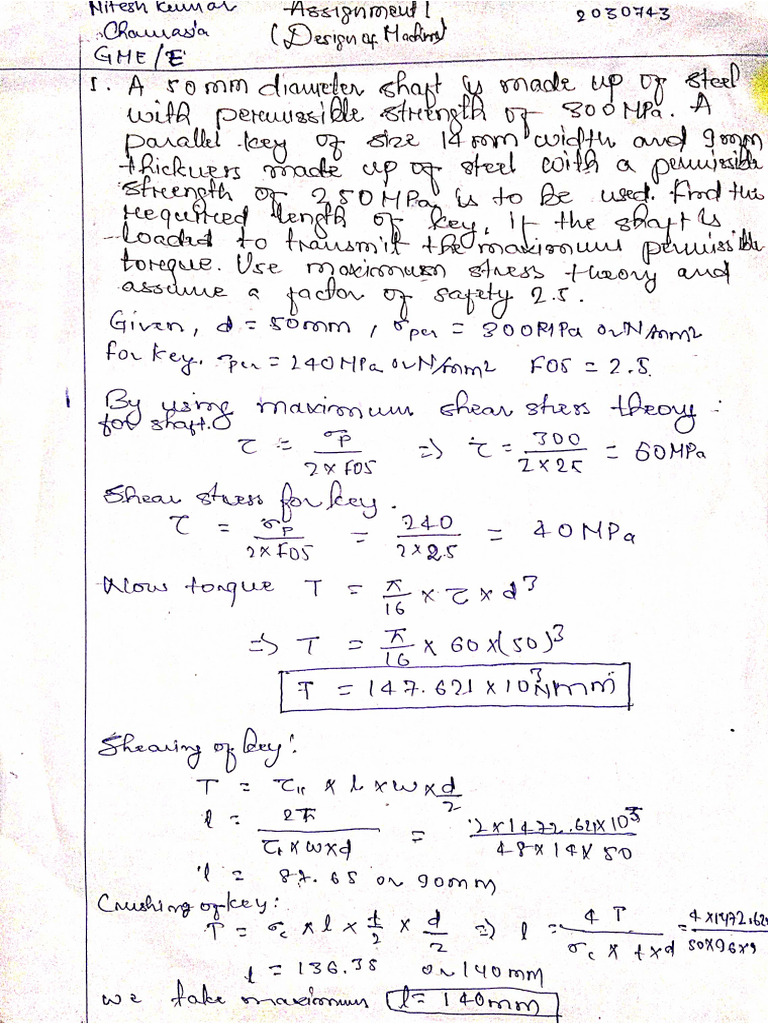 Nitesh Kumar Assignment 1 2030743
Chaurasia (Design of Machine)
GME/E
1. A 50mm diameter shaft is made up of steel
with permissible strength of 300MPa. A
parallel key of size 14mm width and 9mm
thickness made up of steel with a permissible
strength of 250MPa is to be used. Find the
required length of key, if the shaft is
loaded to transmit the maximum permissible
torque. Use maximum stress theory and
assume a factor of safety 2.5.
Given, d = 50mm, σper = 300MPa or N/mm2
for key. σper = 240MPa or N/mm2 FOS = 2.5.
By using maximum shear stress theory:
for shaft.
τ = σp / 2×FOS => τ = 300 / 2×25 = 60MPa
Shear stress for key.
τ = σp / 2×FOS = 240 / 2×2.5 = 40MPa
Now torque T = π/16 × τ × d3
=> T = π/16 × 60×(50)3
T = 147.621×103Nmm
Shearing of key:
T = τk × l × w × d/2
l = 2T / τ×w×d = 2×1472.621×103 / 48×14×50
l = 87.65 or 90mm
Crushing of key:
T = σc × l × t/2 × d/2 => l = 4T / σc × t×d = 4×1472.62 / 50×96×9
l = 136.35 or 140mm
we take maximum l = 140mm